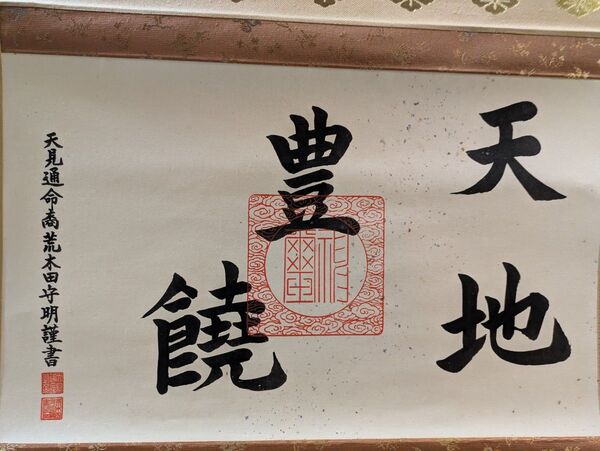 天地
豊饒
天見通命裔荒木田守明謹書